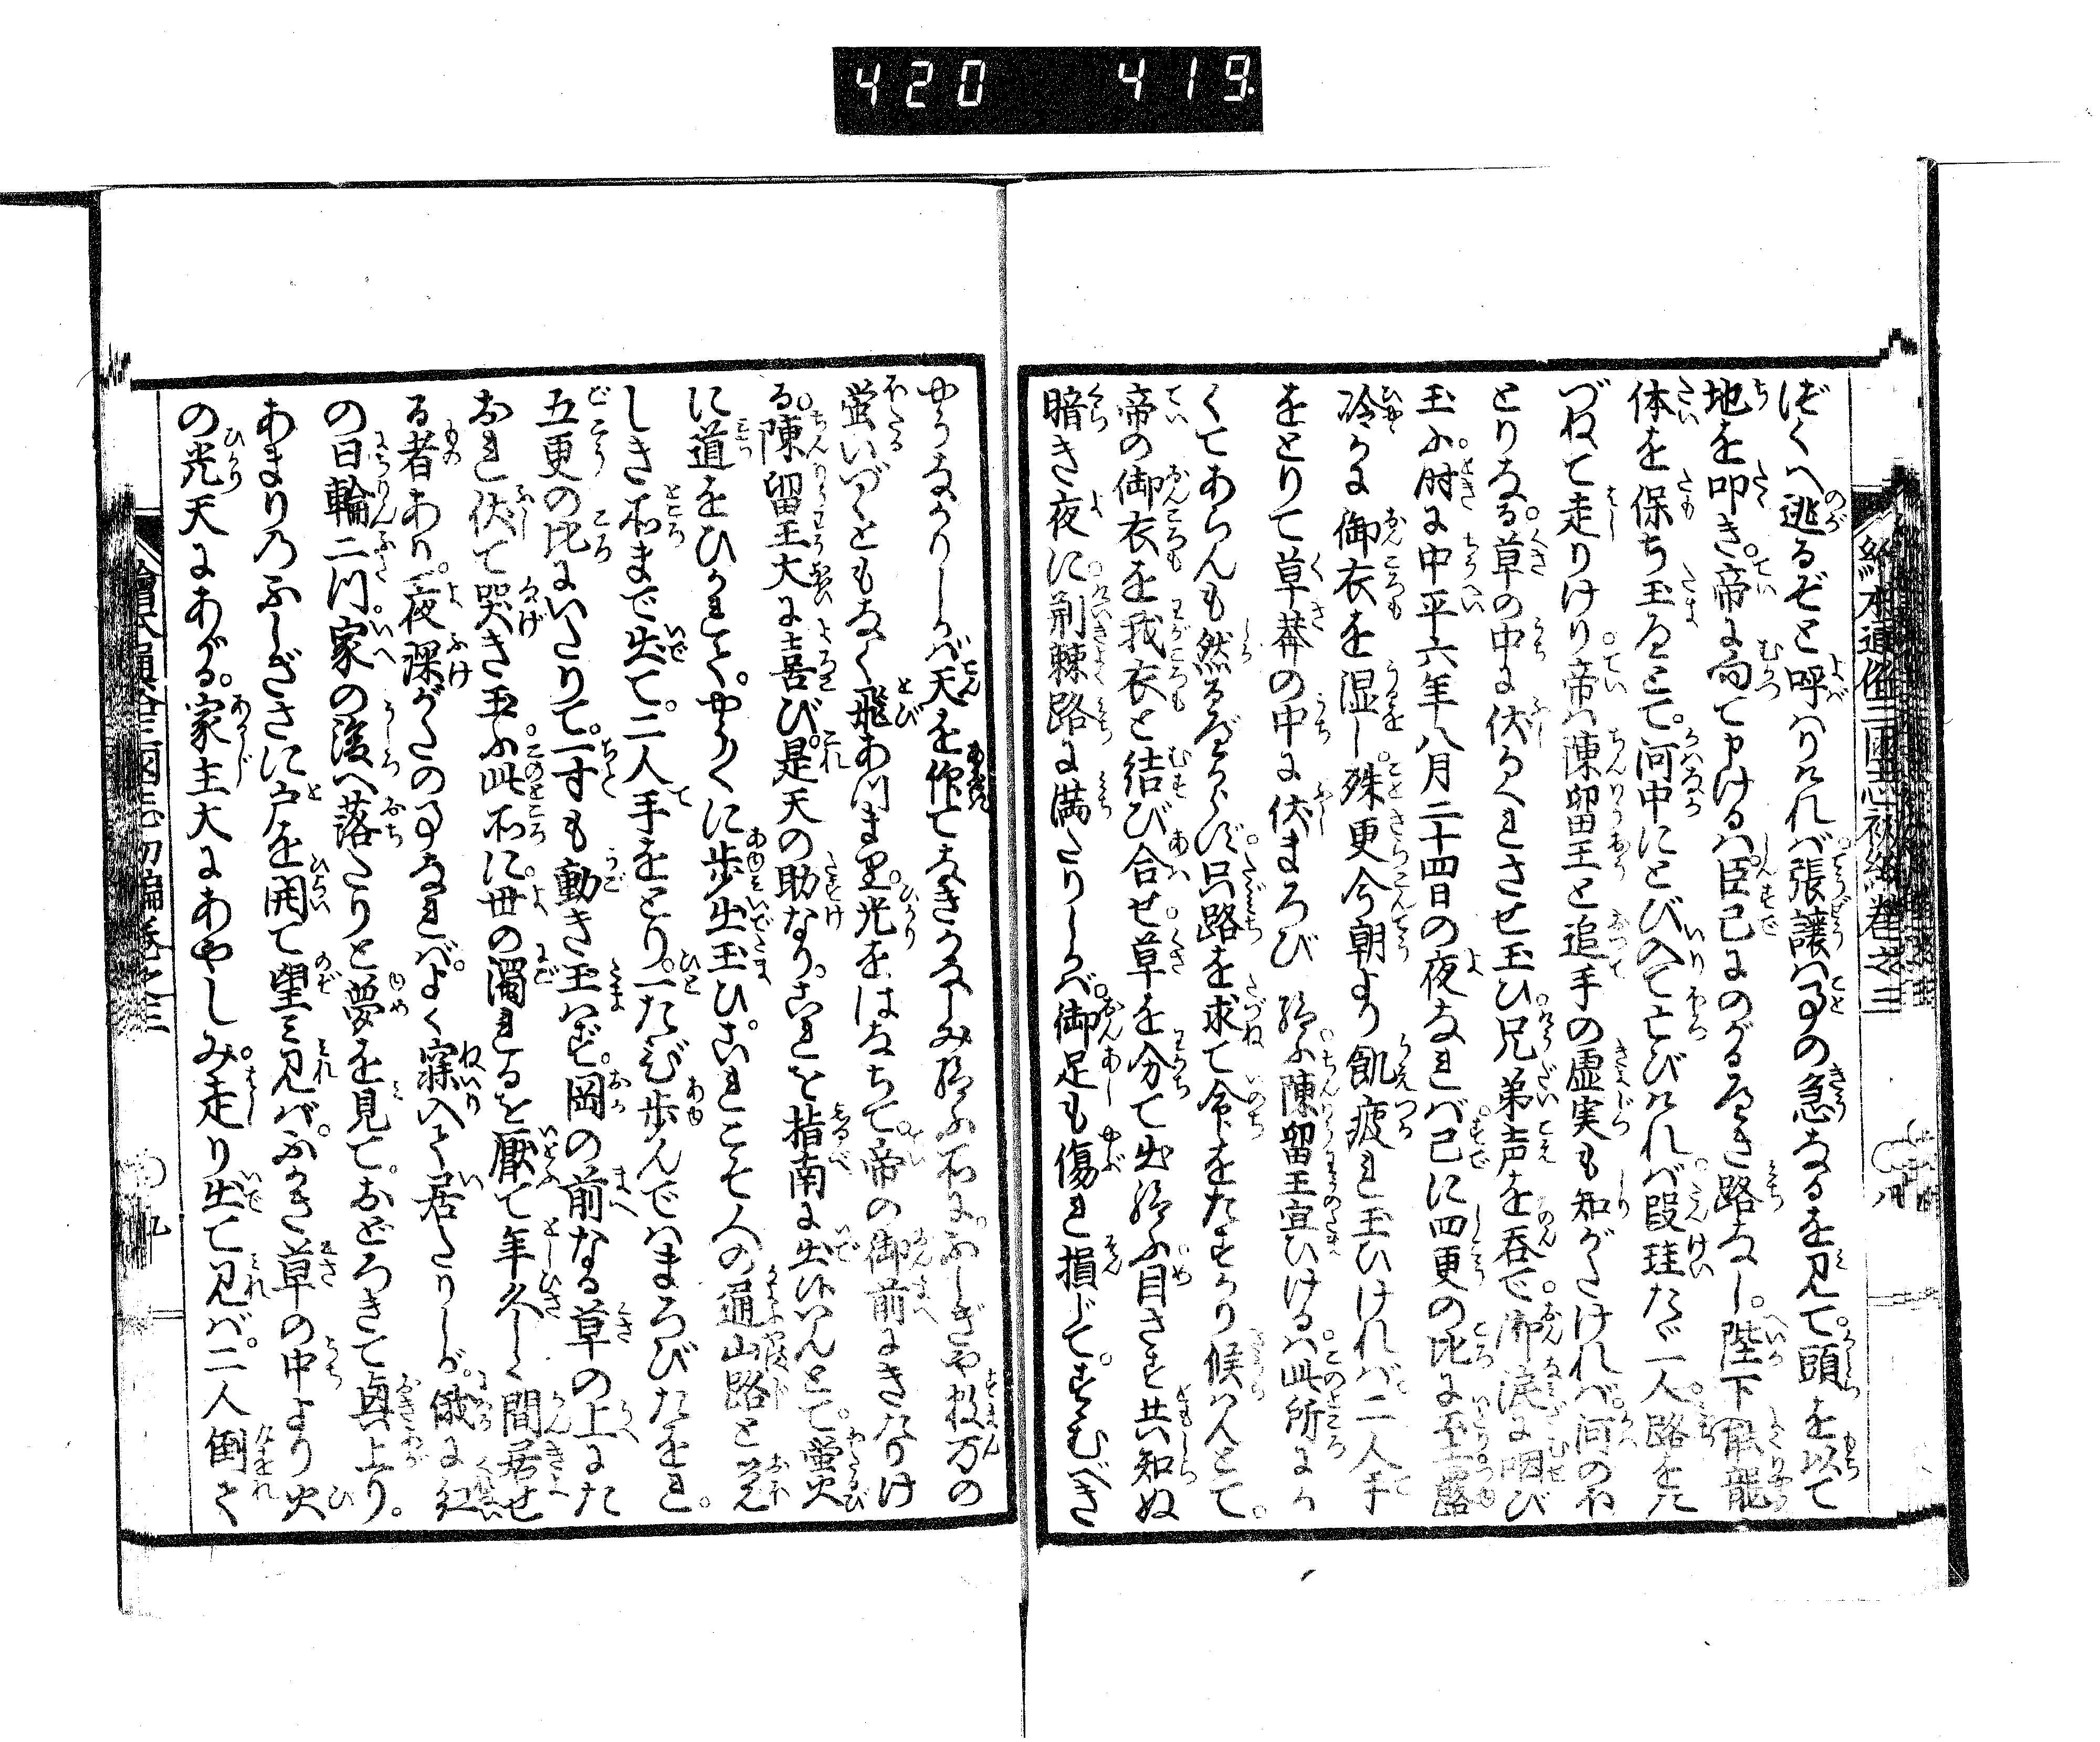 420 419
絵本通俗三国志初編巻之三 八
ぼくへ逃るぞと呼はりければ張譲はことの急なるを見て。頭を以て
地を叩き。帝に向て申けるは臣已にのがるべき路なし。陛下龍
体を保ち玉えとて。河中にとび入て亡びければ。段珪たゞ一人路を
づねて走りけり。帝は陳留王と追手の虚実も知がたければ。河のほ
とりなる草の中に伏かくれさせ玉ひ。兄弟声を呑で。御涙に咽び
玉ふ。時に中平六年八月二十四日の夜なれば。已に四更の比に至露
冷かに御衣を湿し。殊更今朝より飢疲れ玉ひければ。二人手
をとりて草莽の中に伏まろび給ふ。陳留王宣ひけるは。此所にか
くてあらんも然るべからず。只路を求て命をたすかり候はんとて。
帝の御衣を我衣と結び合せ。草を分て出給ふ。目さすとも知ぬ
暗き夜に。荊棘路に満たりしかば。御足も傷れ損じて。すゝむべき
やうなかりしかば天を仰てなきかなしみ給ふ所に。ふしぎや数万の
蛍いづくともなく飛あつまり。光をはなちて。帝の御前にきたりけ
る。陳留王大に喜び。是天の助なり。これを指南に出ばいんとて。蛍火
に道をひかれて。やうやくに歩出玉ひ。これこそ人の通山路と覚
しき所まで出て。二人手をとり。一たび歩んではまろびたをれ。
五更の比にいたりて。一すも動き玉はず。岡の前なる草の上にた
おれ伏て哭き玉ふ。此所に。世の濁れるを厭て年久しく間居せ
る者あり。夜深がたの事なれば。よく寐入て居たりしが。俄に紅
の日輪二つ。家の後へ落たりと夢を見て。おどろきて起上り。
あまりのふしぎさに戸を開て望み見れば。ふかき草の中より火
の光天にあがる。家主大にあやしみ。走り出て見れば。二人倒て
絵本通俗三国志初編巻之三 九